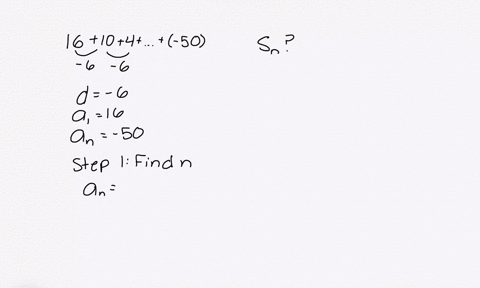 16 + 10 + 4 + ... + (-50)
Sn?
-6 -6
d = -6
a₁ = 16
aₙ = -50
Step 1: Find n
aₙ =